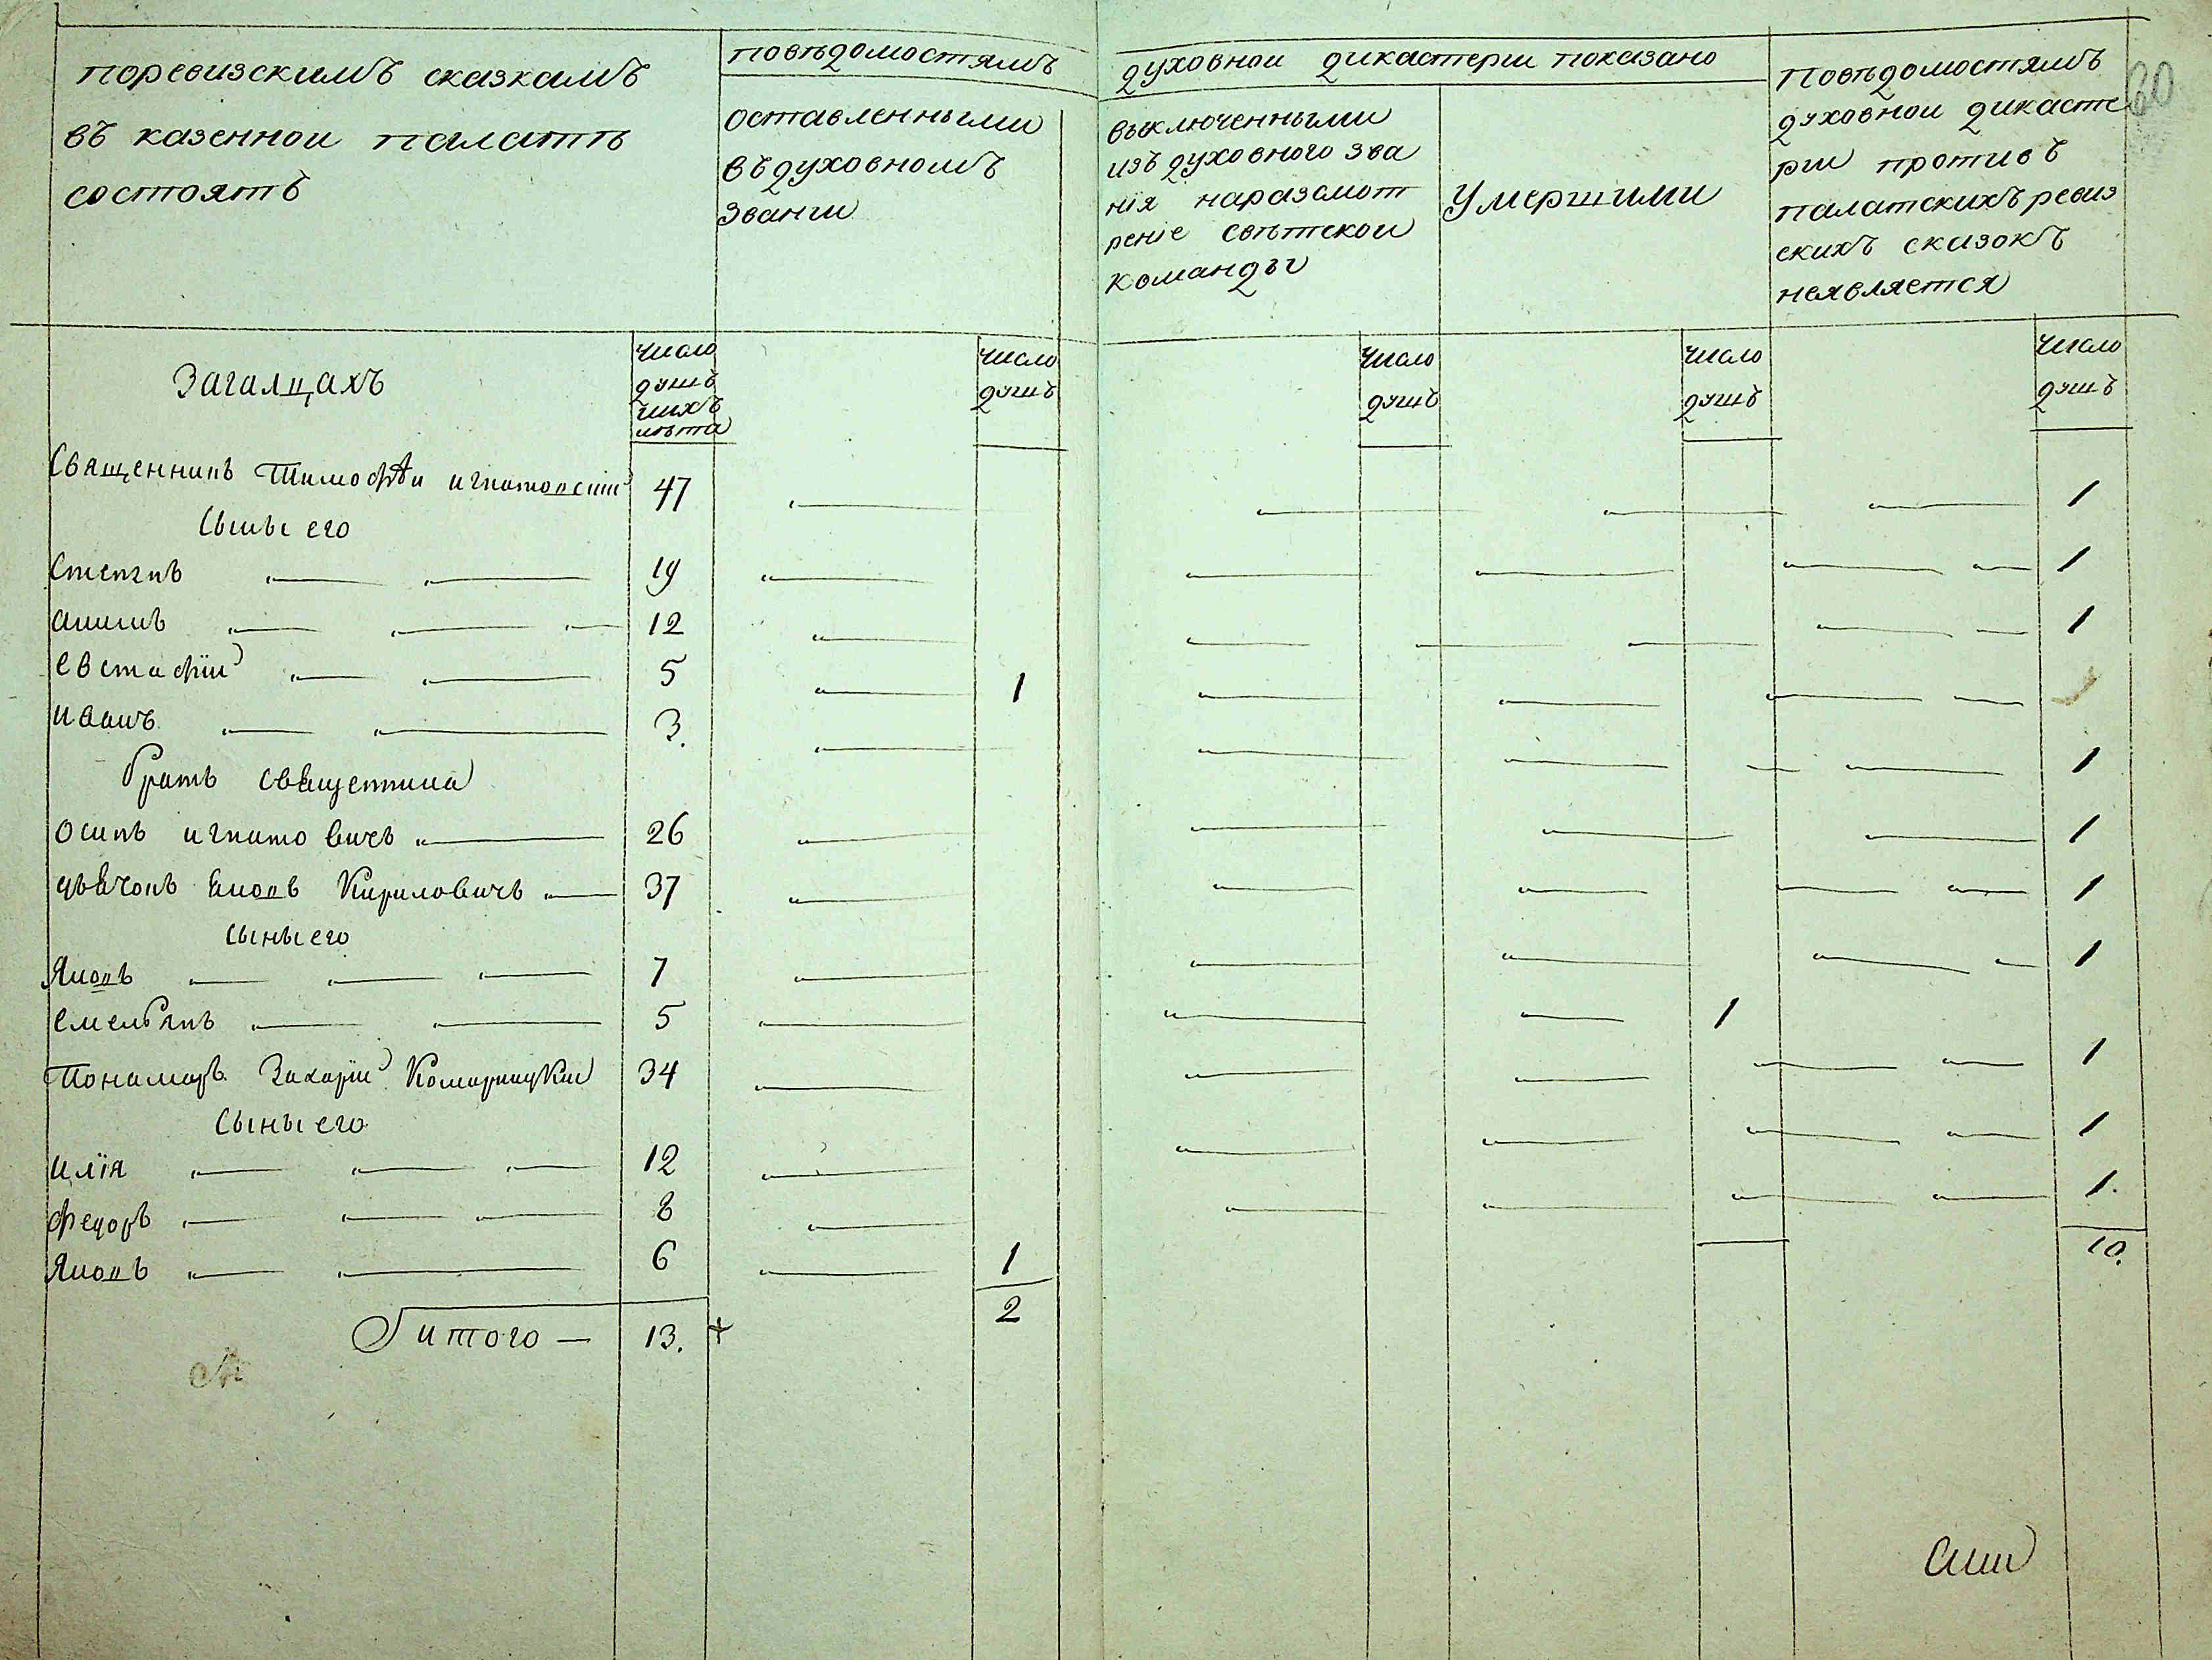 поревизскимъ сказкамъ
въ казенной палатѣ
состоятъ
повѣдомостямъ
оставленными
въ духовномъ
звании
духовнои дикастерии показано
выключенными
изъ духовного зва
нія наразсмот
реніе свѣтской
команды
умершими
Повѣдомостямъ
духовнои дикасте
рии противъ
палатскихъ ревиз
скихъ сказокъ
неявляется
60
Загалцахъ
число
душъ
ихъ
лѣта
число
душъ
число
душъ
число
душъ
число
душъ
Священникъ Тимофѣи игнатовскіи 47 1
Сыны его
Степанъ 19 1
акимъ 12 1
евстафіи 5 1
иванъ 3. 1
братъ священника
осипъ игнатовичъ 26 1
дьячокъ яковъ Кириловичъ 37 1
сыны его
Яковъ 7 1
емельянъ 5 1
Пономаръ Захаріи Комарницкии 34 1
Сыны его
илія 12 1
федоръ 8 1.
Яковъ 6 1
итого — 13. + 2 10.